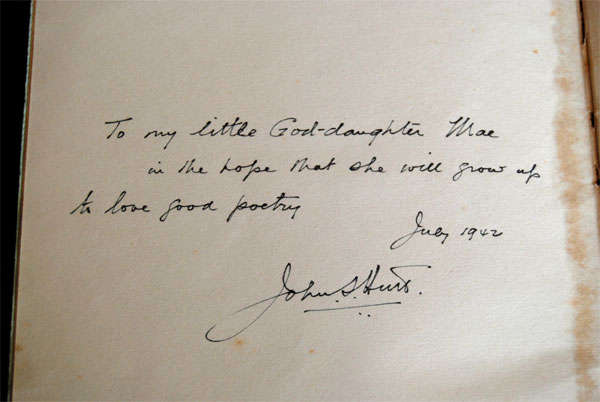 To my little God-daughter Mae
in the hope that she will grow up
to love good poetry
July 1942
John S. Hunt.